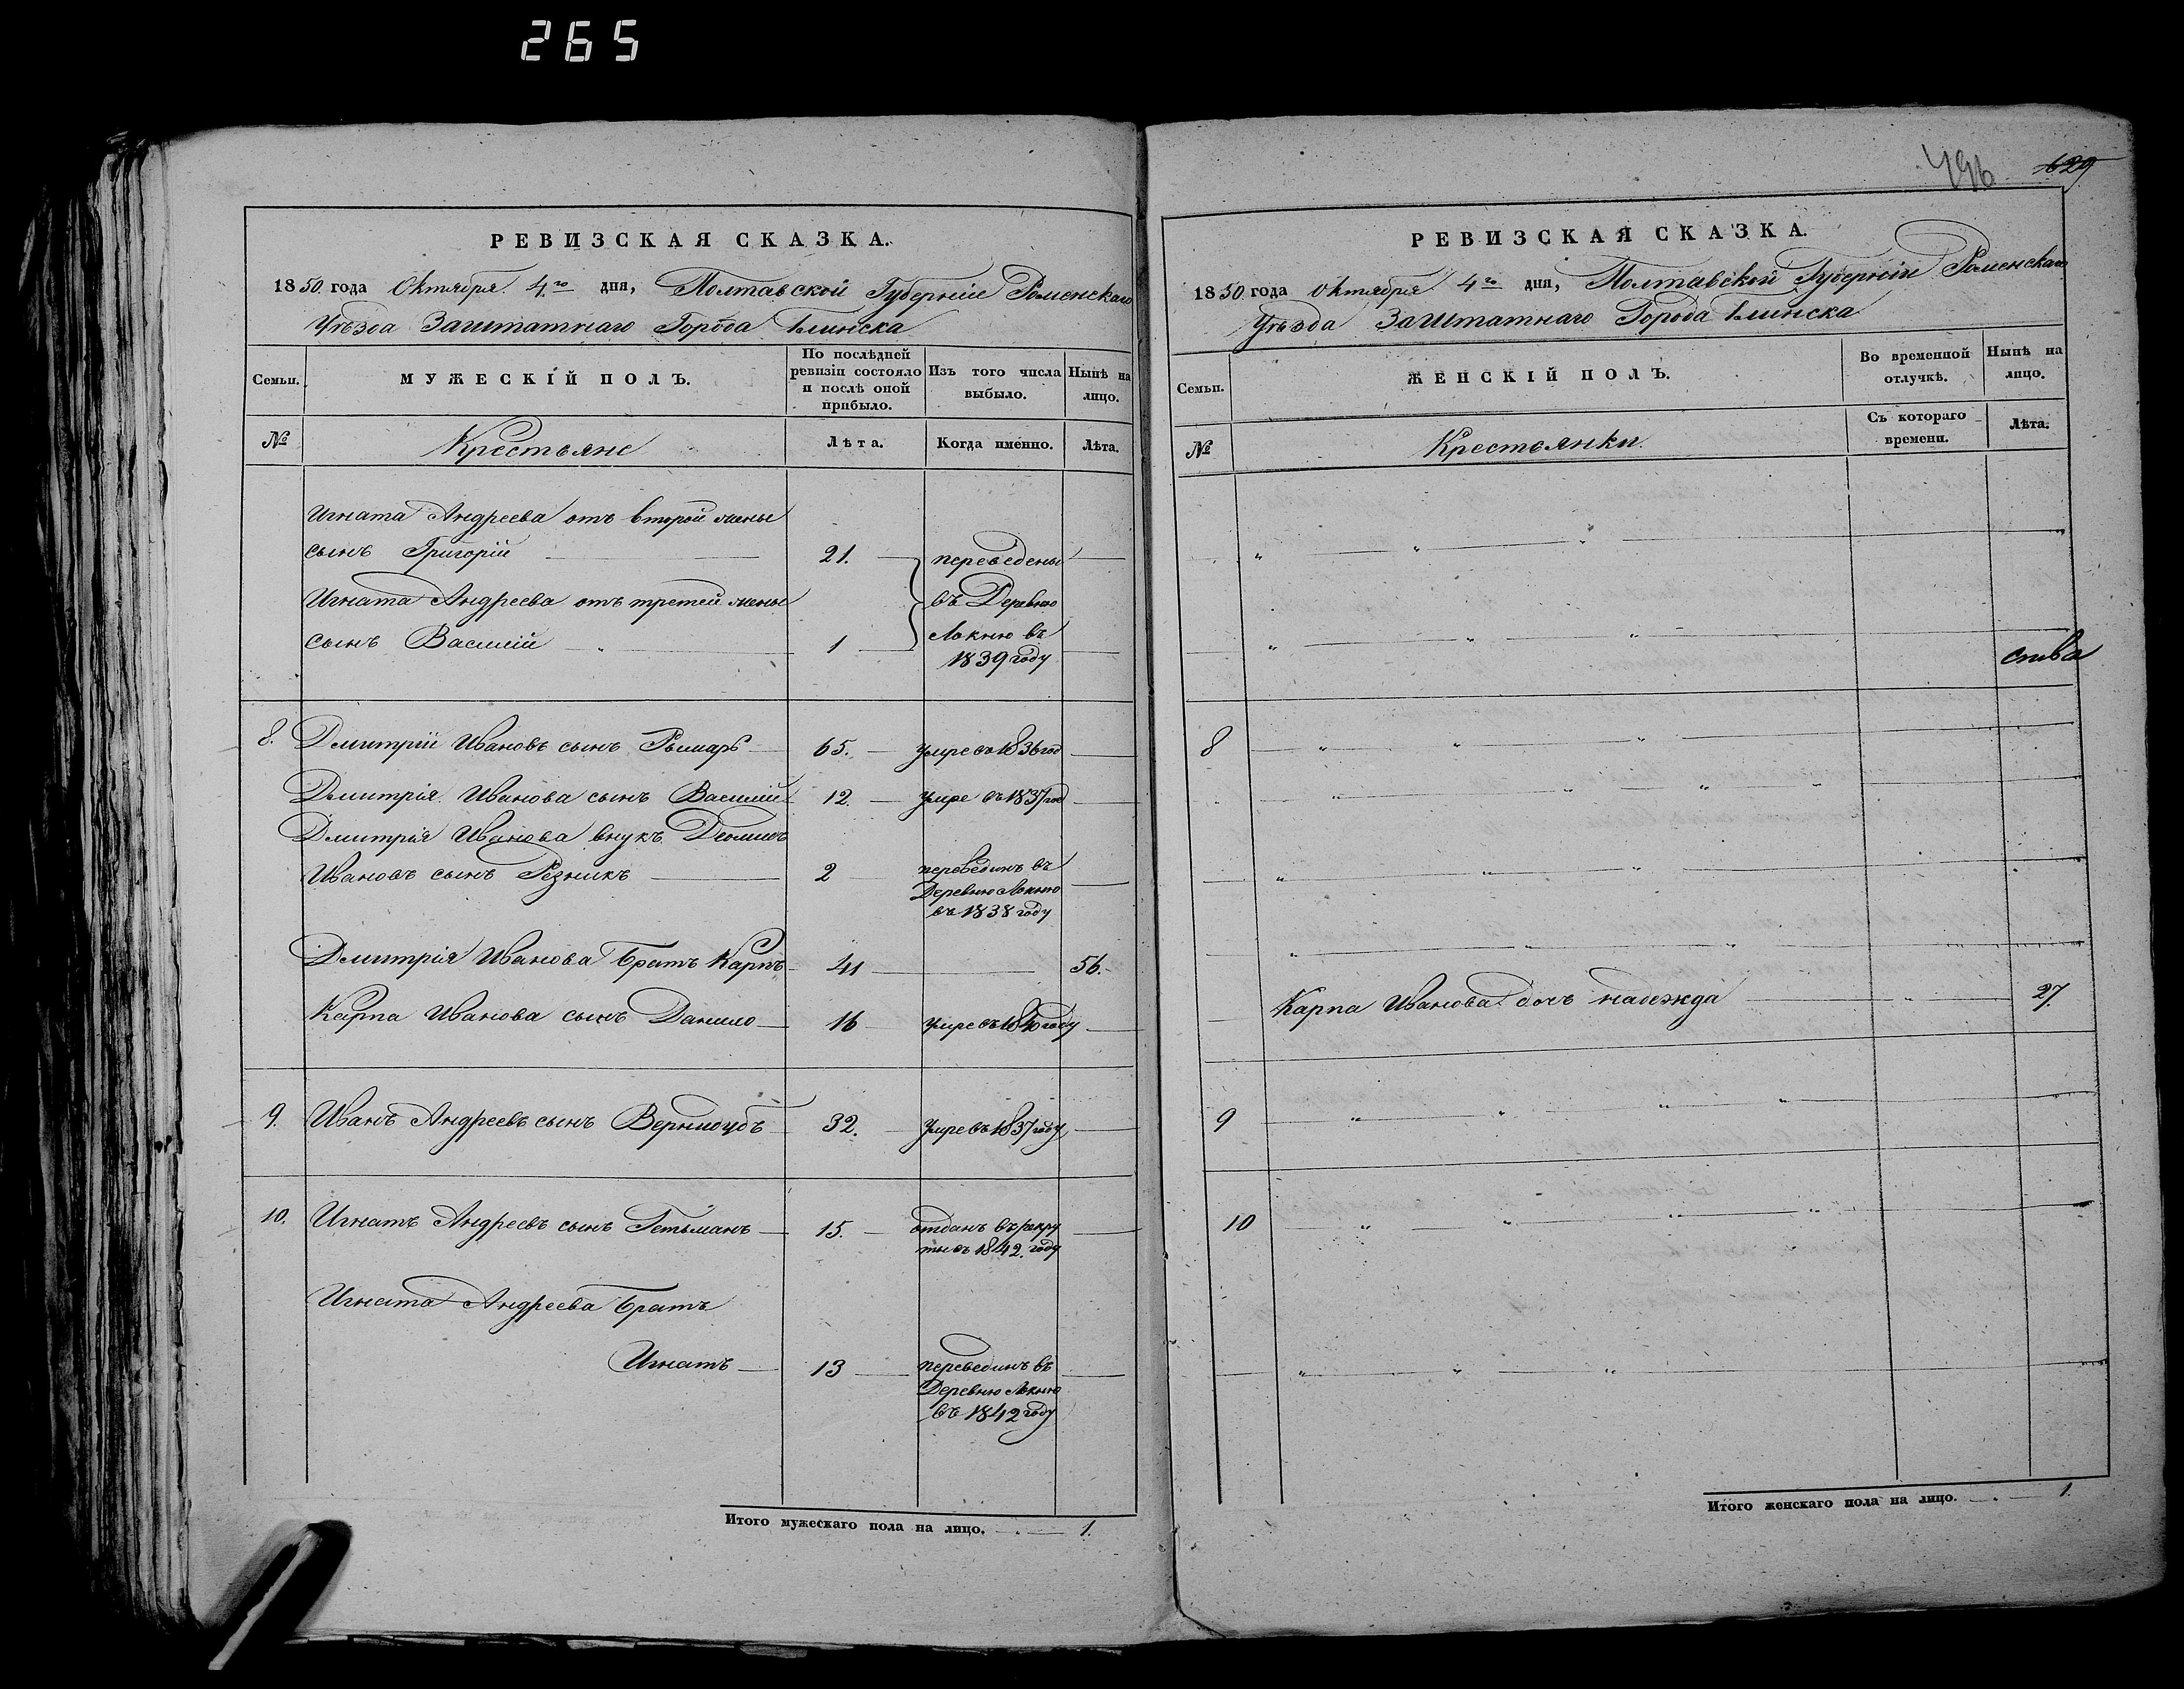 265
РЕВИЗСКАЯ СКАЗКА.
1850 года Октября 4го дня, Полтавской Губерніи Роменскаго
Уѣзда Заштатнаго Города Глинска
Семьи.
МУЖЕСКІЙ ПОЛЪ.
По послѣдней ревизіи состояло и послѣ оной прибыло.
Изъ того числа выбыло.
Нынѣ на лицо.
№
Крестьяне
Лѣта.
Когда именно.
Лѣта.
Игната Андреева отъ второй жены
сынъ Григорій 21. переведены
Игната Андреева отъ третей жены въ Деревню
сынъ Василій 1 Локню въ
1839 году
8. Дмитрій Ивановъ сынъ Рымарь 65. умре въ 1836 год
Дмитрія Иванова сынъ Василій 12. умре въ 1837 год
Дмитрія Иванова внукъ
Ивановъ сынъ Резникъ 2 перевединъ въ
Деревню Локню
въ 1838 году
Дмитрія Иванова братъ Карпъ 41 56.
Карпа Иванова сынъ Данило 16 умре въ 1840 году
9. Иванъ Андреевъ сынъ 32. умре въ 1837 году
10. Игнатъ Андреевъ сынъ Гетьманъ 15. отданъ въ рекру
ты въ 1842. году
Игната Андреева братъ
Игнатъ 13 перевединъ въ
Деревню Локню
въ 1842 году
Итого мужескаго пола на лицо. 1.
496 629
РЕВИЗСКАЯ СКАЗКА.
1850 года Октября 4го дня, Полтавской Губерніи Роменскаго
Уѣзда Заштатнаго Города Глинска
Семьи.
ЖЕНСКІЙ ПОЛЪ.
Во временной отлучкѣ.
Нынѣ на лицо.
№
Крестьянки.
Съ котораго времени.
Лѣта.
8
Карпа Иванова дочь надежда 27.
9
10
Итого женскаго пола на лицо. 1.